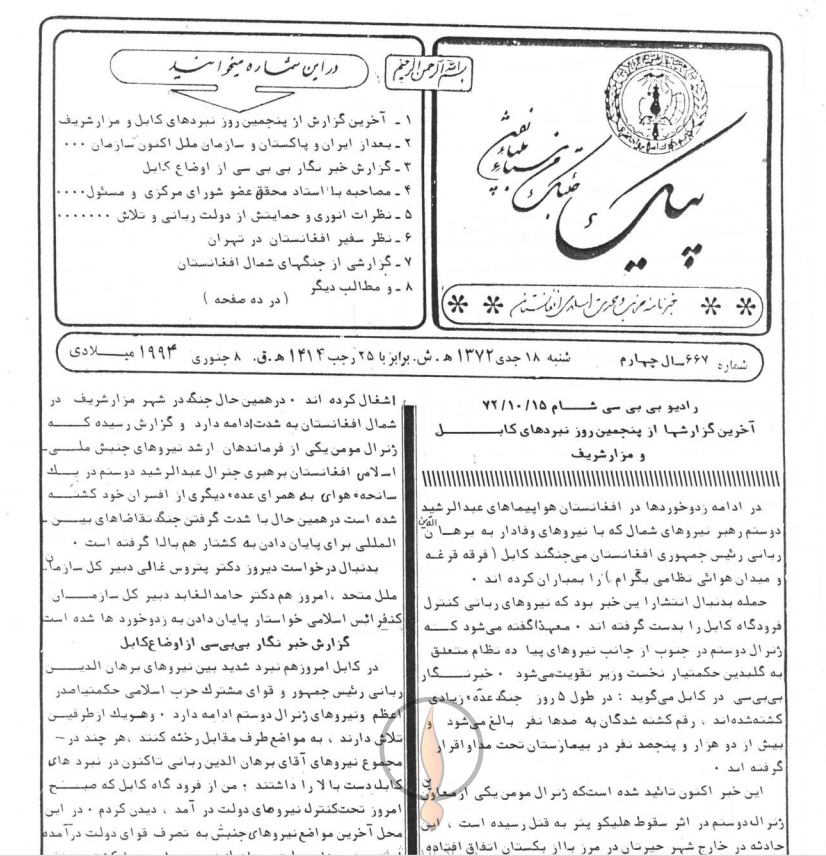 بسم الله الرحمن الرحیم
پیک
خبرنامه حزب وحدت اسلامی افغانستان
در این شماره میخوانید
۱ ـ آخرین گزارش از پنجمین روز نبردهای کابل و مزارشریف
۲ ـ بعداز ایران و پاکستان و سازمان ملل اکنون سازمان ۰۰۰
۳ ـ گزارش خبر نگار بی بی سی از اوضاع کابل
۴ ـ مصاحبه با استاد محقق عضو شورای مرکزی و مسئول ۰۰۰۰
۵ ـ نظرات انوری و حمایتش از دولت ربانی و تلاش ۰۰۰۰۰۰۰
۶ ـ نظر سفیر افغانستان در تهران
۷ ـ گزارشی از جنگهای شمال افغانستان
۸ ـ و مطالب دیگر
( در ده صفحه )
شماره ۶۶۷ سال چهارم شنبه ۱۸ جدی ۱۳۷۲ ه‍.ش. برابر با ۲۵ رجب ۱۴۱۴ ه‍.ق. ۸ جنوری ۱۹۹۴ میلادی
رادیو بی بی سی شام ۷۲/۱۰/۱۵
آخرین گزارشها از پنجمین روز نبردهای کابل
و مزارشریف
در ادامه زدوخوردها در افغانستان هواپیماهای عبدالرشید
دوستم رهبر نیروهای شمال که با نیروهای وفادار به برهان الدین
ربانی رئیس جمهوری افغانستان می‌جنگند کابل ( فرقه قرغه
و میدان هوائی نظامی بگرام ) را بمباران کرده اند ۰
حمله بدنبال انتشار این خبر بود که نیروهای ربانی کنترل
فرودگاه کابل را بدست گرفته اند ۰ معهذا گفته می‌شود که
ژنرال دوستم در جنوب از جانب نیروهای پیا ده نظام متعلق
به گلبدین حکمتیار نخست وزیر تقویت می‌شود ۰ خبرنگار
بی‌بی‌سی در کابل می‌گوید : در طول ۵ روز جنگ عده‌ء زیادی
کشته شده‌اند ، رقم کشته شدگان به صدها نفر بالغ می‌شود و
بیش از دو هزار و پنجصد نفر در بیمارستان تحت مداوا قرار
گرفته اند ۰
این خبر اکنون تائید شده است که ژنرال مومن یکی از معاونین
ژنرال دوستم در اثر سقوط هلیکو پتر به قتل رسیده است ، این
حادثه در خارج شهر حیرتان در مرز با ازبکستان اتفاق افتاده،
اشغال کرده اند ۰ درهمین حال جنگ در شهر مزار شریف در
شمال افغانستان به شدت ادامه دارد و گزارش رسیده که
ژنرال مومن یکی از فرماندهان ارشد نیروهای جنبش ملی ـ
اسلامی افغانستان برهبری جنرال عبدالرشید دوستم در یک
سانحه‌ء هوای به همرای عده‌ء دیگری از افسران خود کشته
شده است درهمین حال با شدت گرفتن جنگ تقاضاهای بین ـ
المللی برای پایان دادن به کشتار هم بالا گرفته است ۰
بدنبال درخواست دیروز دکتر پتروس غالی دبیر کل سازمان
ملل متحد ، امروز هم دکتر حامد الغابد دبیر کل سازمان
کنفرانس اسلامی خواستار پایان دادن به زدوخورد ها شده است
گزارش خبر نگار بی‌بی‌سی از اوضاع کابل
در کابل امروزهم نبرد شدید بین نیروهای برهان الدین
ربانی رئیس جمهور و قوای مشترک حزب اسلامی حکمتیار صدر
اعظم ونیروهای ژنرال دوستم ادامه دارد ۰ وهریک از طرفین
تلاش دارند ، به مواضع طرف مقابل رخنه کنند ، هر چند در ـ
مجموع نیروهای آقای برهان الدین ربانی تاکنون در نبرد های
کابل دست بالا را داشتند ؛ من از فرود گاه کابل که صبح
امروز تحت کنترل نیروهای دولت در آمد ، دیدن کردم ۰ در این
محل آخرین مواضع نیروهای جنبش به تصرف قوای دولت درآمده